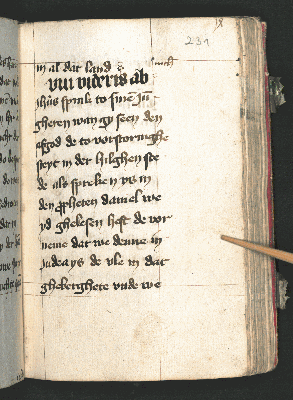 231
in al dat land
vvi videris ab
ihūs sprak to sinē iū
gheren wan gy seen den
afgod de to vorstoringhe
steyt in der hilghen ste
de als spreken is in
den propheten daniel we
yd ghelesen heft de vor
neme dat we denne in
iudea ys de vle in dat
gheberghete vnde we